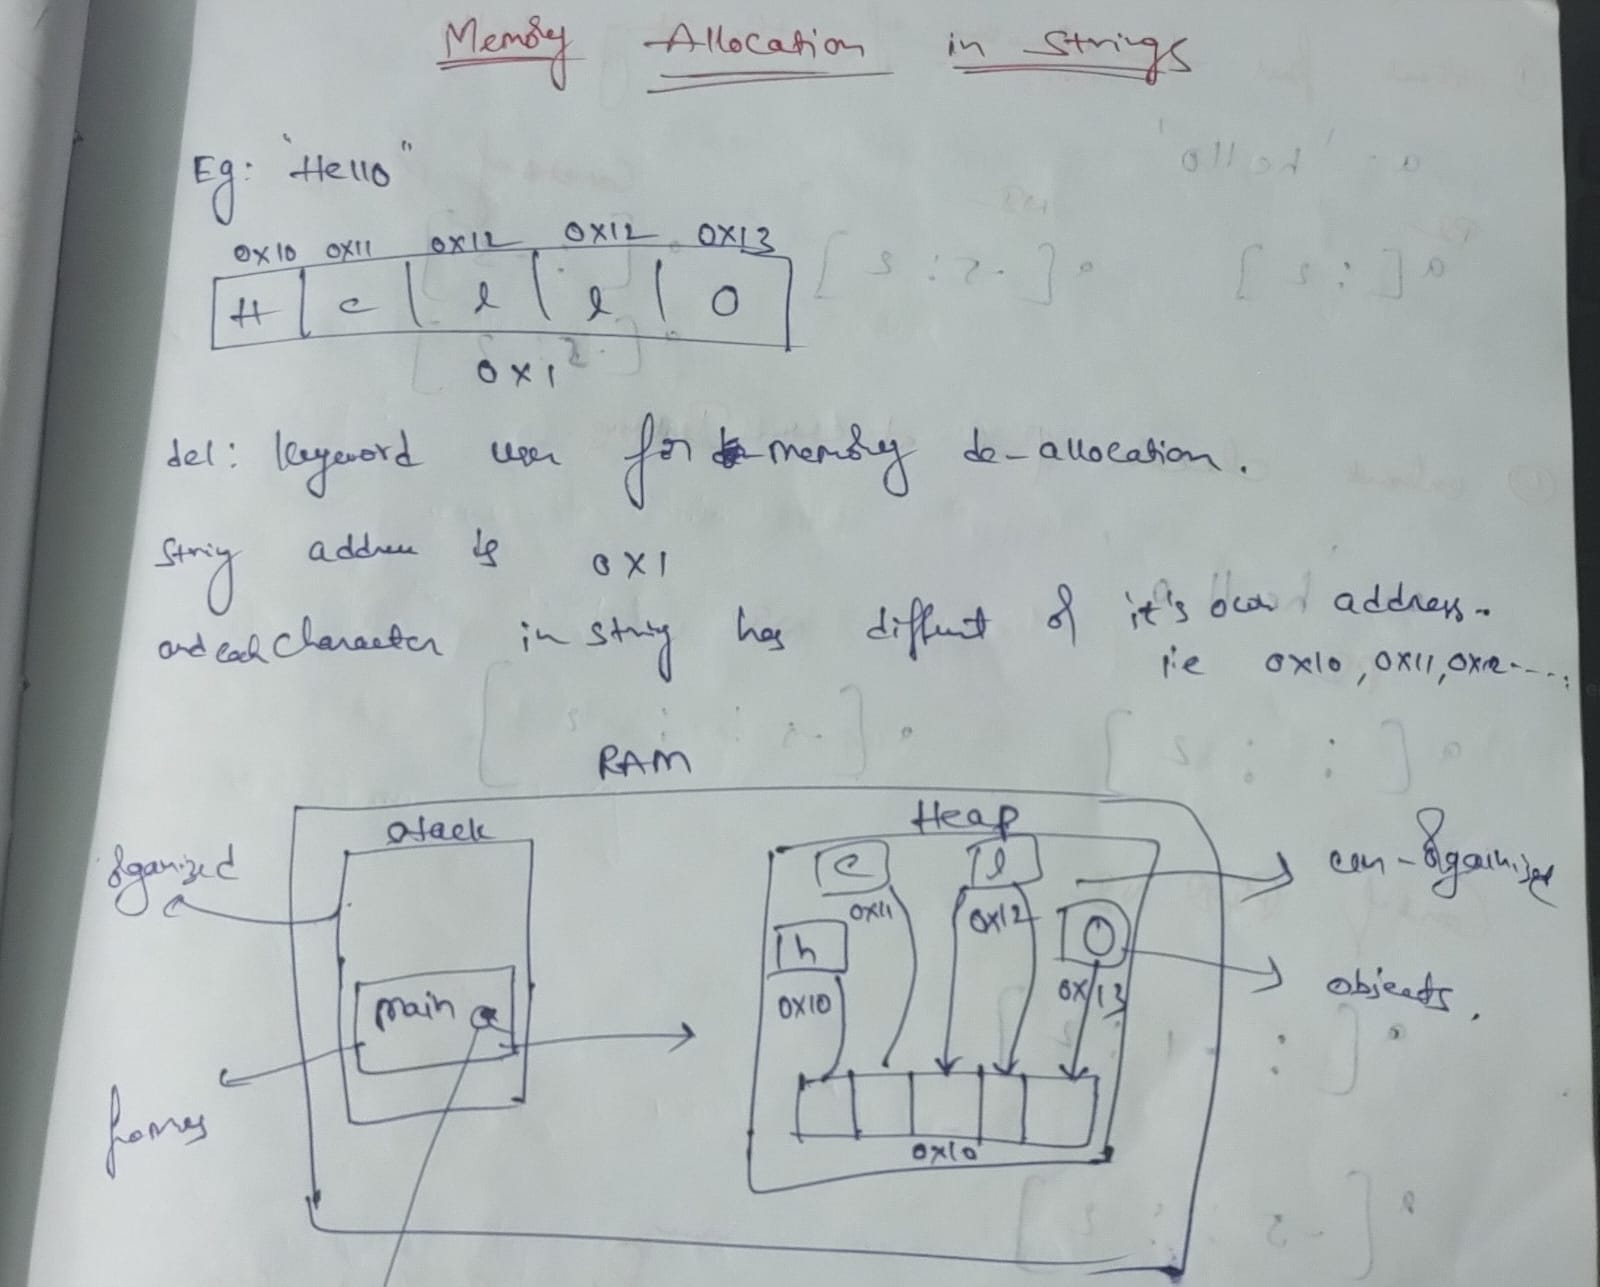 Memory Allocation in Strings
Eg: "Hello"
0x10 0x11 0x12 0x12 0x13
H e l l o
0x1
del: keyword user for memory de-allocation.
String address is 0x1
and each character in string has diffent or it's own address.
i.e 0x10, 0x11, 0x12----.
RAM
Stack
Heap
organized
e
l
un-organised
0x11
0x12
h
o
main a
0x10
0x13
objects.
frames
0x10